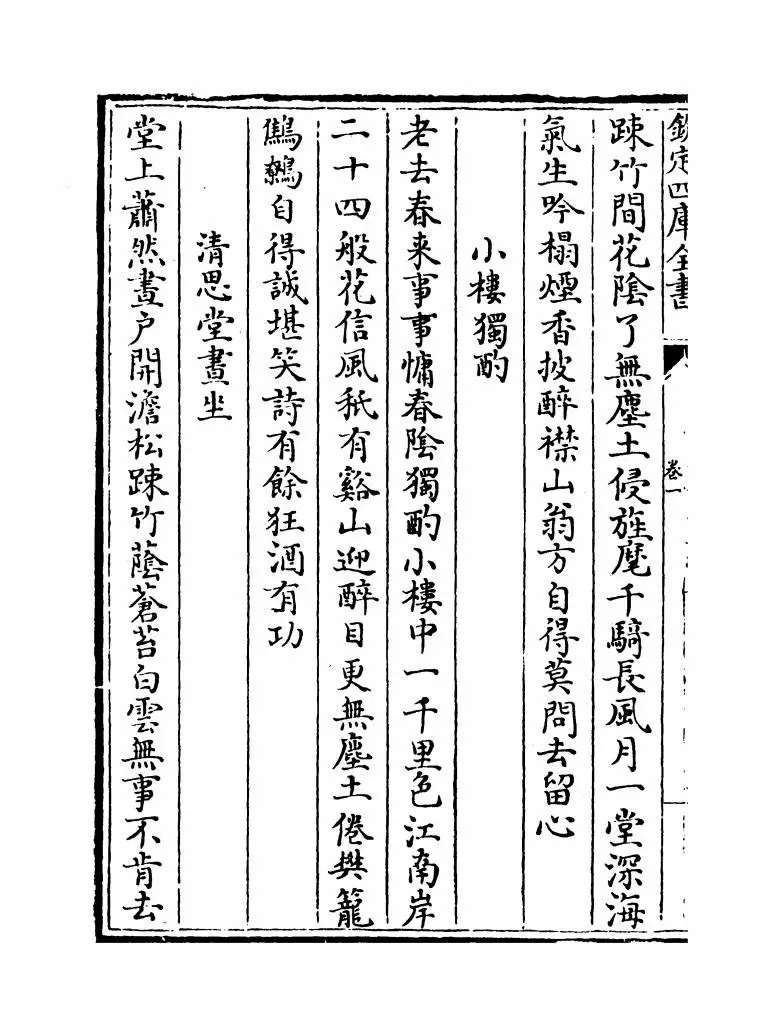 欽定四庫全書
卷一
踈竹間花陰了無塵土侵旌麾千騎長風月一堂深海
氣生吟榻煙香披醉襟山翁方自得莫問去留心
小樓獨酌
老去春来事事慵春陰獨酌小樓中一千里色江南岸
二十四般花信風秖有谿山迎醉目更無塵土倦樊籠
鷦鷯自得誠堪笑詩有餘狂酒有功
清思堂晝坐
堂上蕭然晝户開澹松踈竹蔭蒼苔白雲無事不肯去